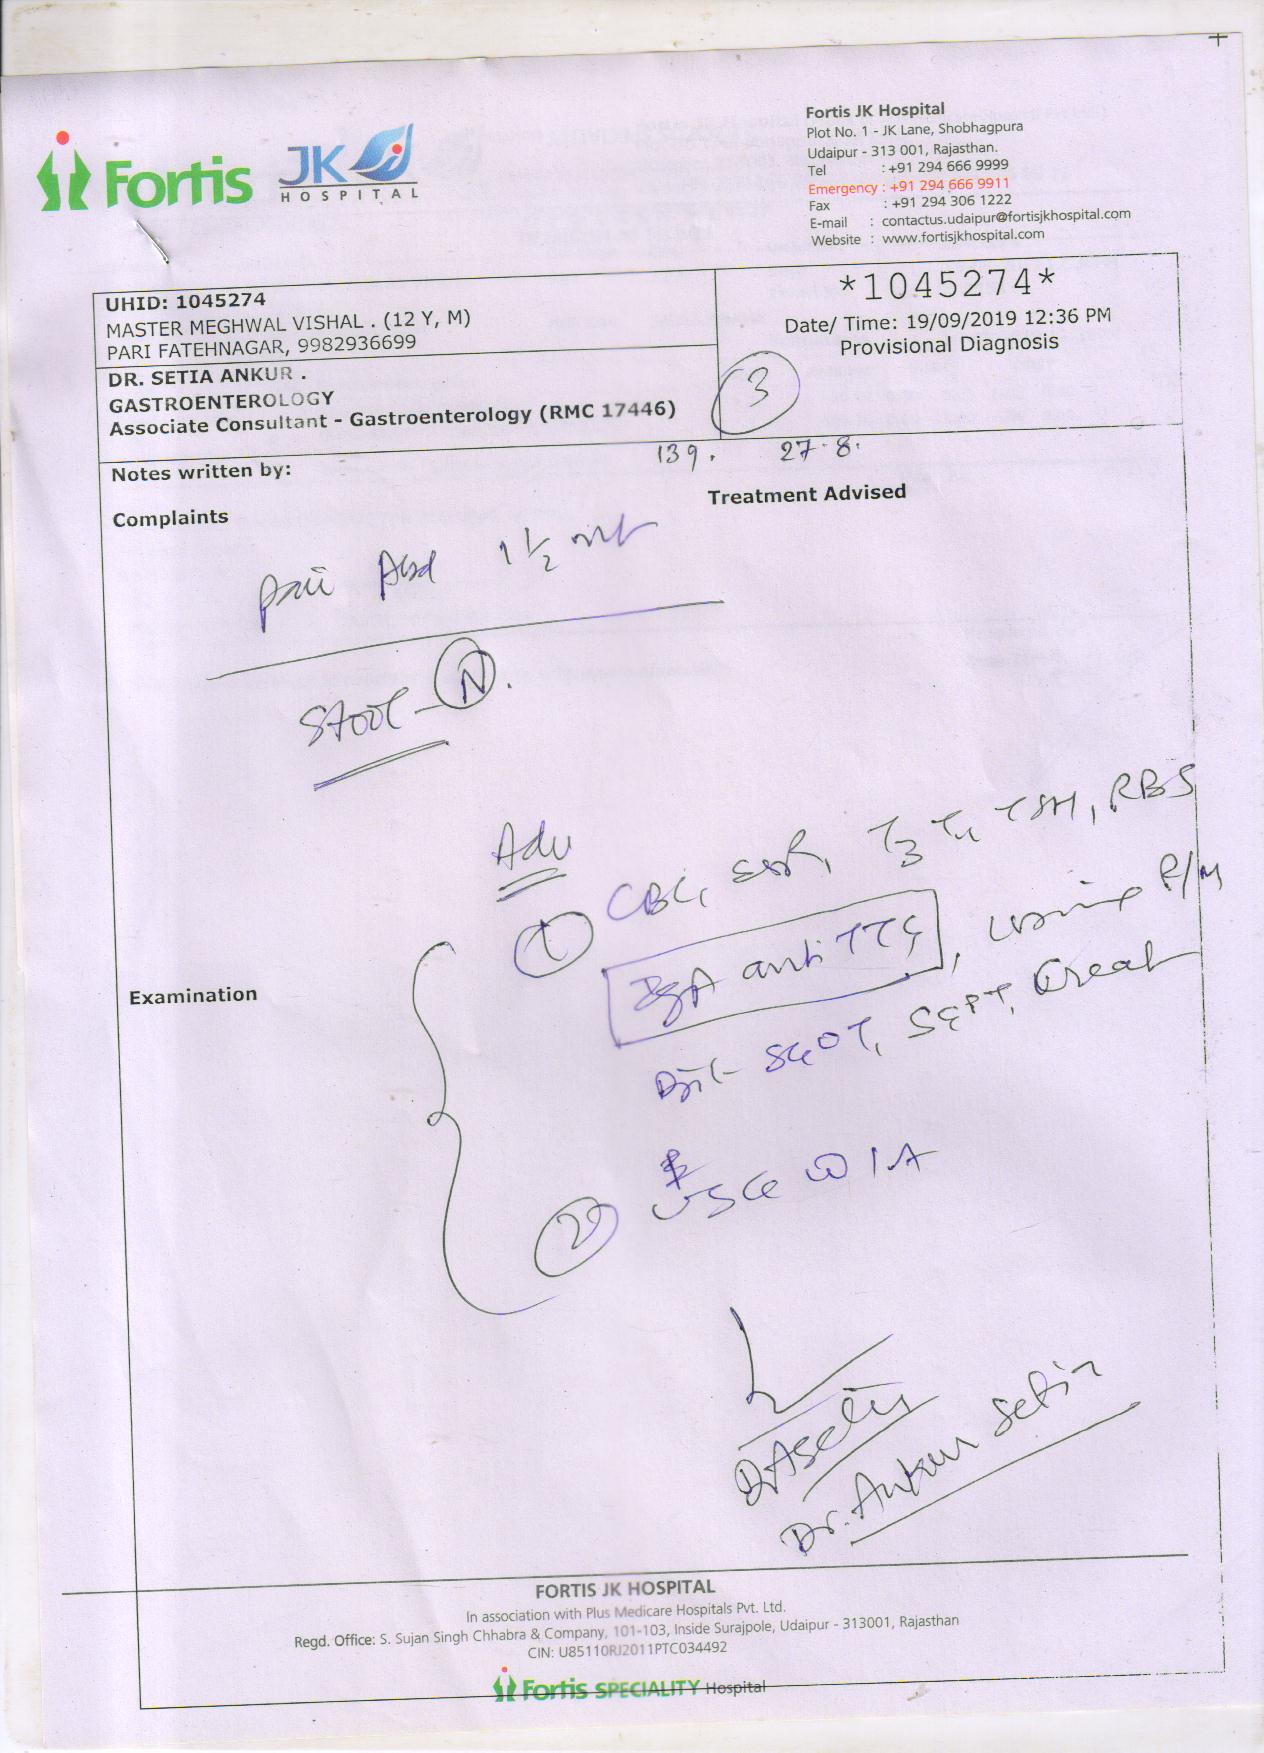 Fortis JK HOSPITAL
Fortis JK Hospital
Plot No. 1 - JK Lane, Shobhagpura
Udaipur - 313 001, Rajasthan.
Tel : +91 294 666 9999
Emergency : +91 294 666 9911
Fax : +91 294 306 1222
E-mail : contactus.udaipur@fortisjkhospital.com
Website : www.fortisjkhospital.com
UHID: 1045274
MASTER MEGHWAL VISHAL . (12 Y, M)
PARI FATEHNAGAR, 9982936699
DR. SETIA ANKUR .
GASTROENTEROLOGY
Associate Consultant - Gastroenterology (RMC 17446)
*1045274*
Date/ Time: 19/09/2019 12:36 PM
Provisional Diagnosis
3
139. 27.8.
Notes written by:
Treatment Advised
Complaints
Pain Abd 1 1/2 mt
Stool - N.
Adv
1 CBC, ESR, T3 T4 TSH, RBS
IgA anti TTG, Urine R/M
Bil- SGOT, SGPT, Creat
Examination
2 USG W/A
Dr. Ankur Setia
FORTIS JK HOSPITAL
In association with Plus Medicare Hospitals Pvt. Ltd.
Regd. Office: S. Sujan Singh Chhabra & Company, 101-103, Inside Surajpole, Udaipur - 313001, Rajasthan
CIN: U85110RJ2011PTC034492
Fortis SPECIALITY Hospital